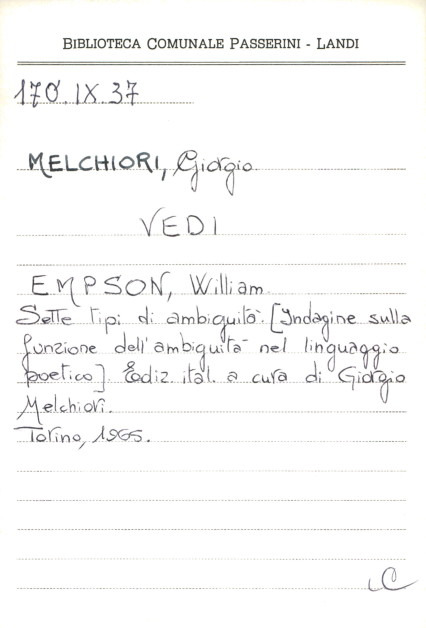 BIBLIOTECA COMUNALE PASSERINI - LANDI
170.IX.37
MELCHIORI, Giorgio
VEDI
EMPSON, William
Sette tipi di ambiguità. [Indagine sulla
funzione dell'ambiguità nel linguaggio
poetico]. Ediz. ital. a cura di Giorgio
Melchiori.
Torino, 1965.